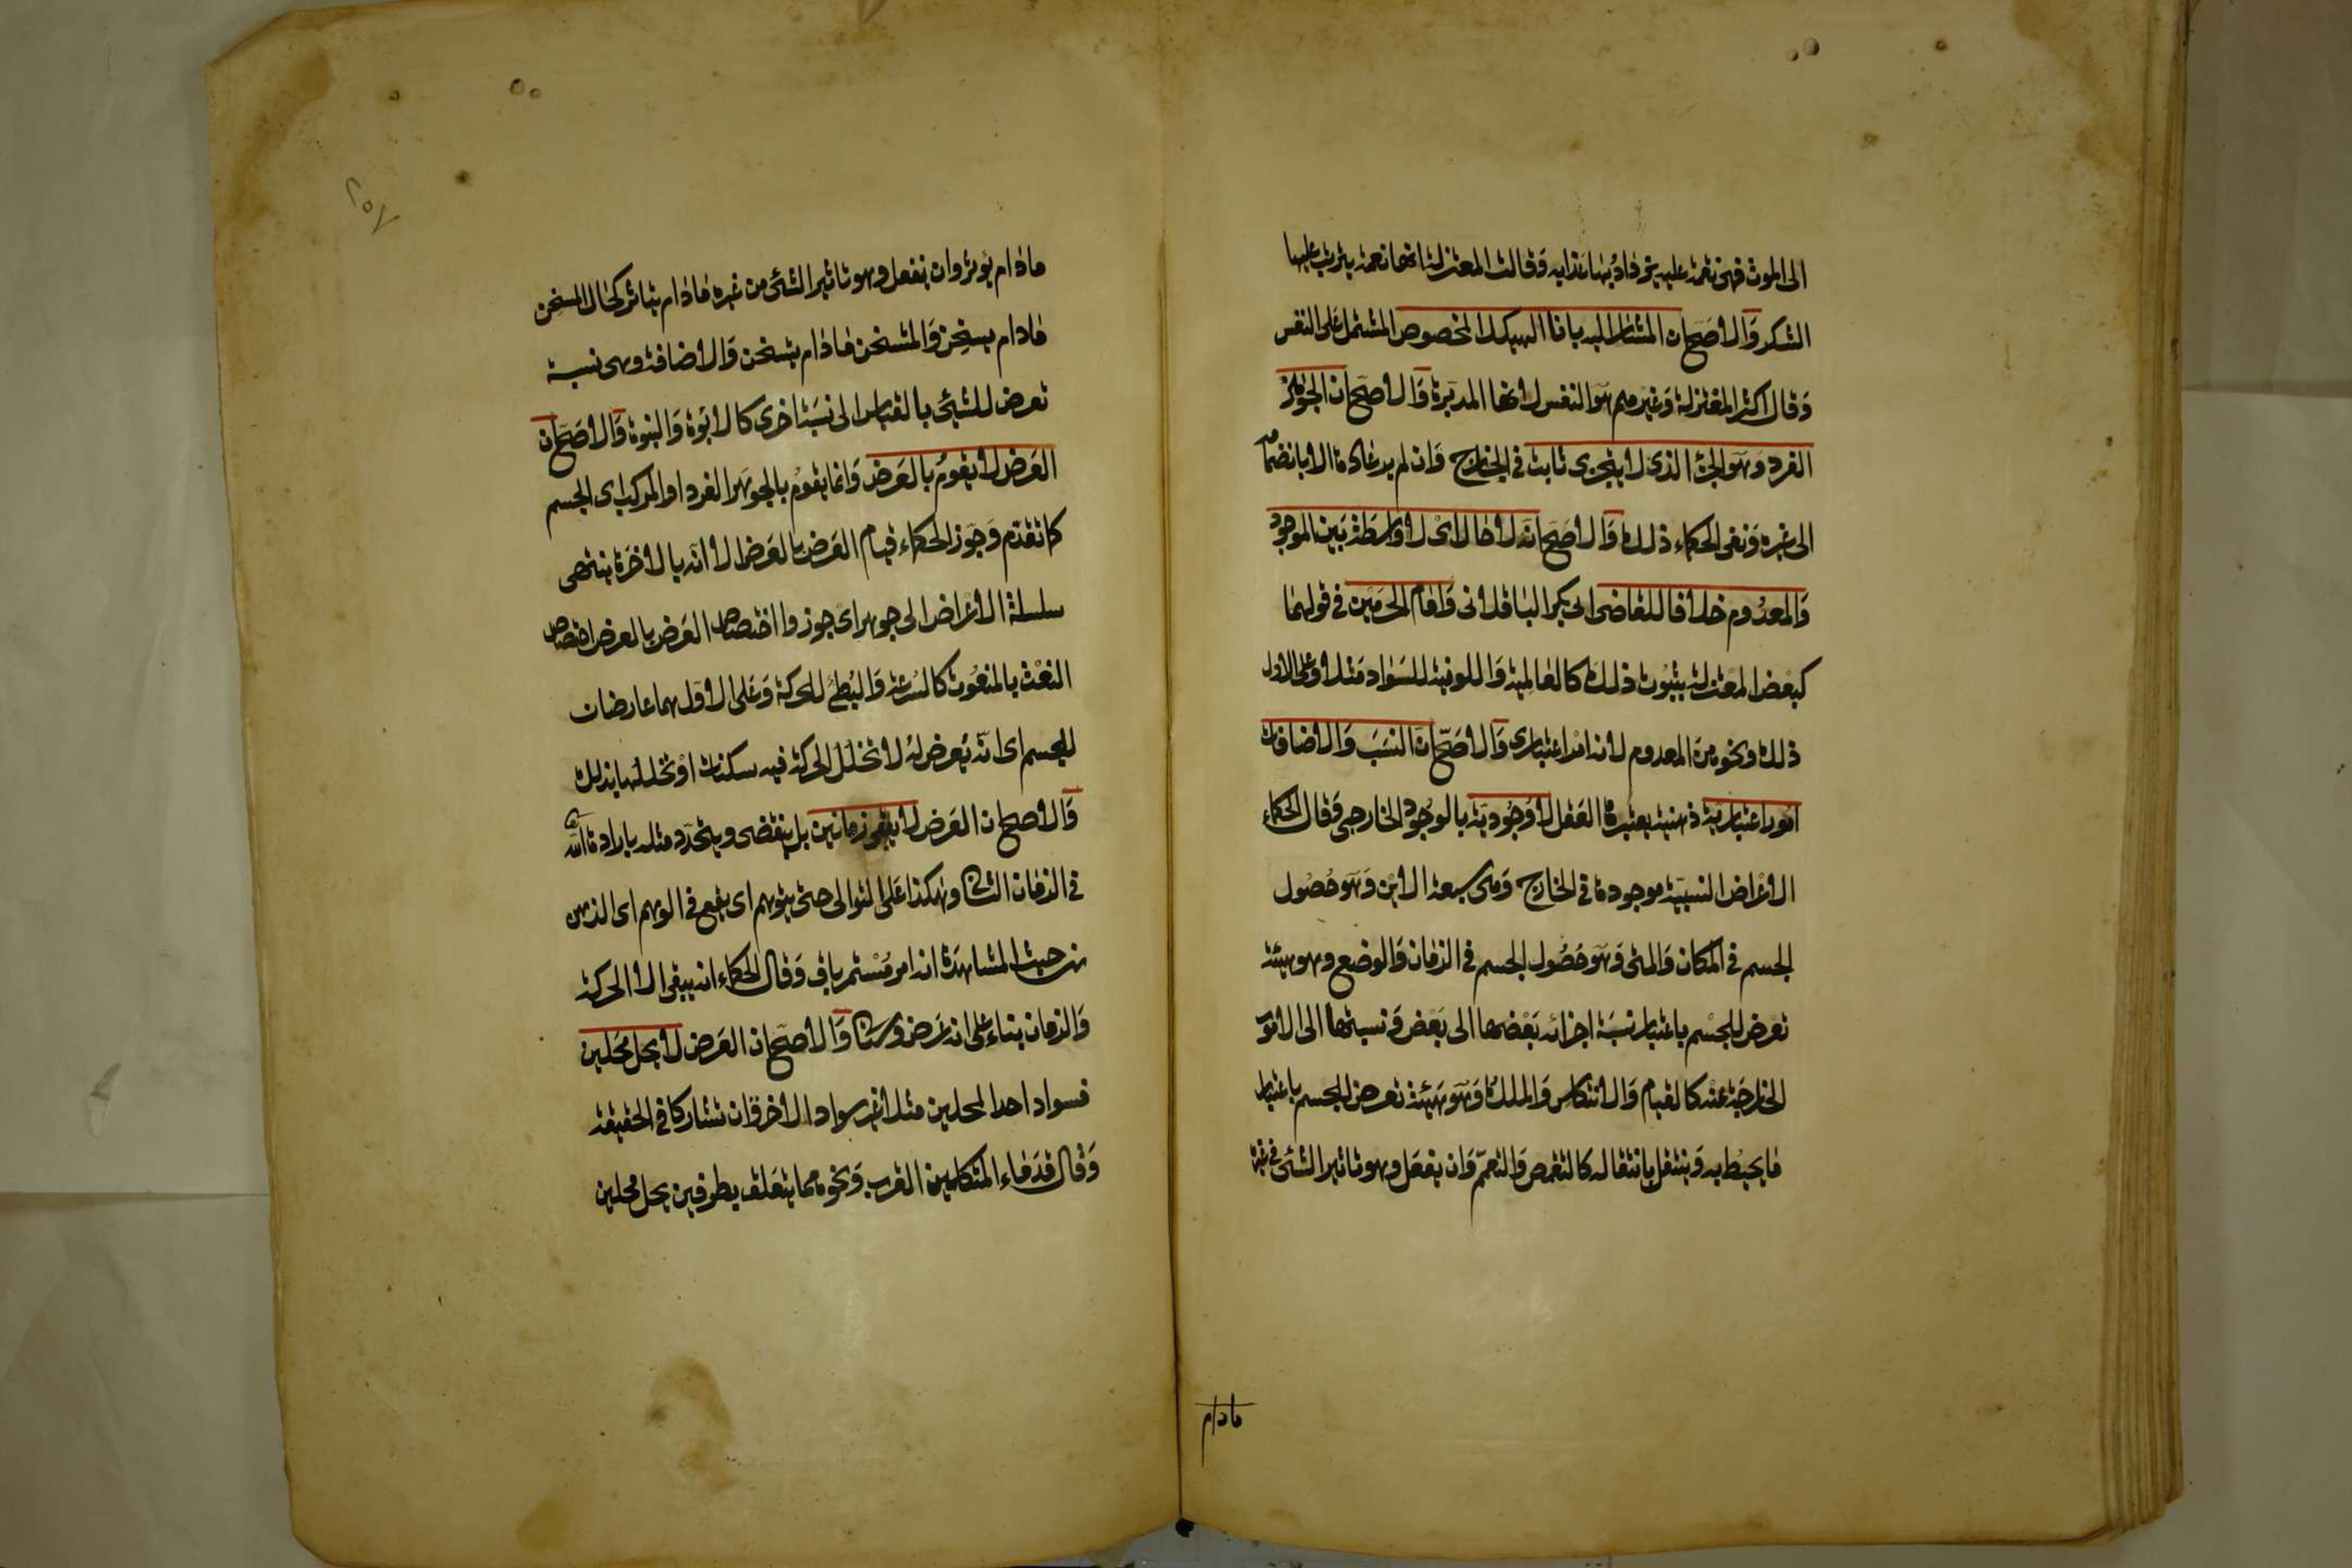 الى الموت فهى نقمة عليه يزداد بها عذابه وَقالت المعتزلة انها نعمة يترتب عليها
الشكر وَالاصَحّ ان المشار اليه بانا الهيكل المخصوص المشتمل على النفس
وَقال اكثر المعتزلة وَغيرهم هوَ النفس لانها المدبّرة وَالاصَحّ ان الجوْهر
الفرد وَهوَ الجزء الذى لا يتجزى ثابت فى الخارج وَان لم ير عادة الا بانضمامه
الى غيره وَنفى الحكماء ذلك وَالاصَحّ انّه لا حال اىْ لا واسطة بَين الموجود
وَالمعدُوم خلافا للقاضى ابى بكر الباقلانى وَامام الحرمَين فى قولهما
كبعْض المعْتزلة بثبُوت ذلك كالعالمية وَاللونية للسَواد مَثلا وعلى الاول
ذلك ونحوه منَ المعدوم لانه امْر اعتبارى وَالاصَحّ انّ النسَب وَالاضافات
امُور اعتبَاريّة ذهنية يعتبرهَا العَقل لا وُجُوديّة بالوجُود الخارجى وَقال الحكماء
الاعْراض النسبيّة موجودة فى الخارج وَهى سبعة الايْن وَهوَ حُصُول
الجسم فى المكان وَالمتى وَهوَ حُصُول الجسم فى الزمَان وَالوضع وهو هيئة
تعْرض للجسْم باعتبار نسبَة اجزائه بَعْضها الى بَعْض وَنسبتها الى الامور
الخارجَة عنْه كالقيام وَالانتكاس وَالملك وَهوَ هَيئة تعرض للجسم باعتبار
مَا يحيْط به وَينتقل بانتقاله كالتقمص وَالتعمّم وَان يفعَل وهو تاثير الشئ فى غيره
مادام
٢٥٧
مادَام يؤثر وان ينفعل وهو تاثير الشئ من غيره مَادَام يتاثر كحَال المسخن
مَادام يسخن وَالمتسخن مَادَام يتسخن وَالاضافة وهى نسبة
تعرض للشئ بالقياس الى نسبَة اخرى كالابوّة وَالبنوة وَالاصَحّ ان
العَرض لا يقومُ بالعَرض وَانما يقومُ بالجوهَر الفرد او المركب اى الجسم
كما تقدّم وَجَوز الحكماء قيام العَرض بالعَرض الا انّه بالاخرَة ينتهى
سلسلة الاعْراض الى جوهر اى جوزوا اختصاص العَرض بالعرض اختصاص
النعْت بالمنعُوت كالسُرعة وَالبُطئ للحركة وَعَلى الاوّل هما عارضان
للجسم اى انّه يَعرض لهُ لا تخلل الحركة فيه سكنات اوْ تخللها بذلك
وَالاصح ان العَرض لا يبقى زمانين بل ينقضى ويتجدّد مثله بارادة الله تعالى
فى الزمَان الثانى وَهكذا عَلى التوالى حتى يتوهم اى يقع فى الوهم اى الذهن
من حيث المشاهدَة انه امر مُسْتمر باق وَقال الحكماء انه يبقى الا الحركة
وَالزمان بناء على انه عَرض وسيَاتى وَالاصَحّ ان العَرض لا يحل مَحَلين
فسواد احد المحلين مثلا غير سواد الاخر وَان تشاركا فى الحقيقة
وَقال قدَماء المتكلمين القرب وَنحوه مما يتعَلق بطرفين يحل محلين